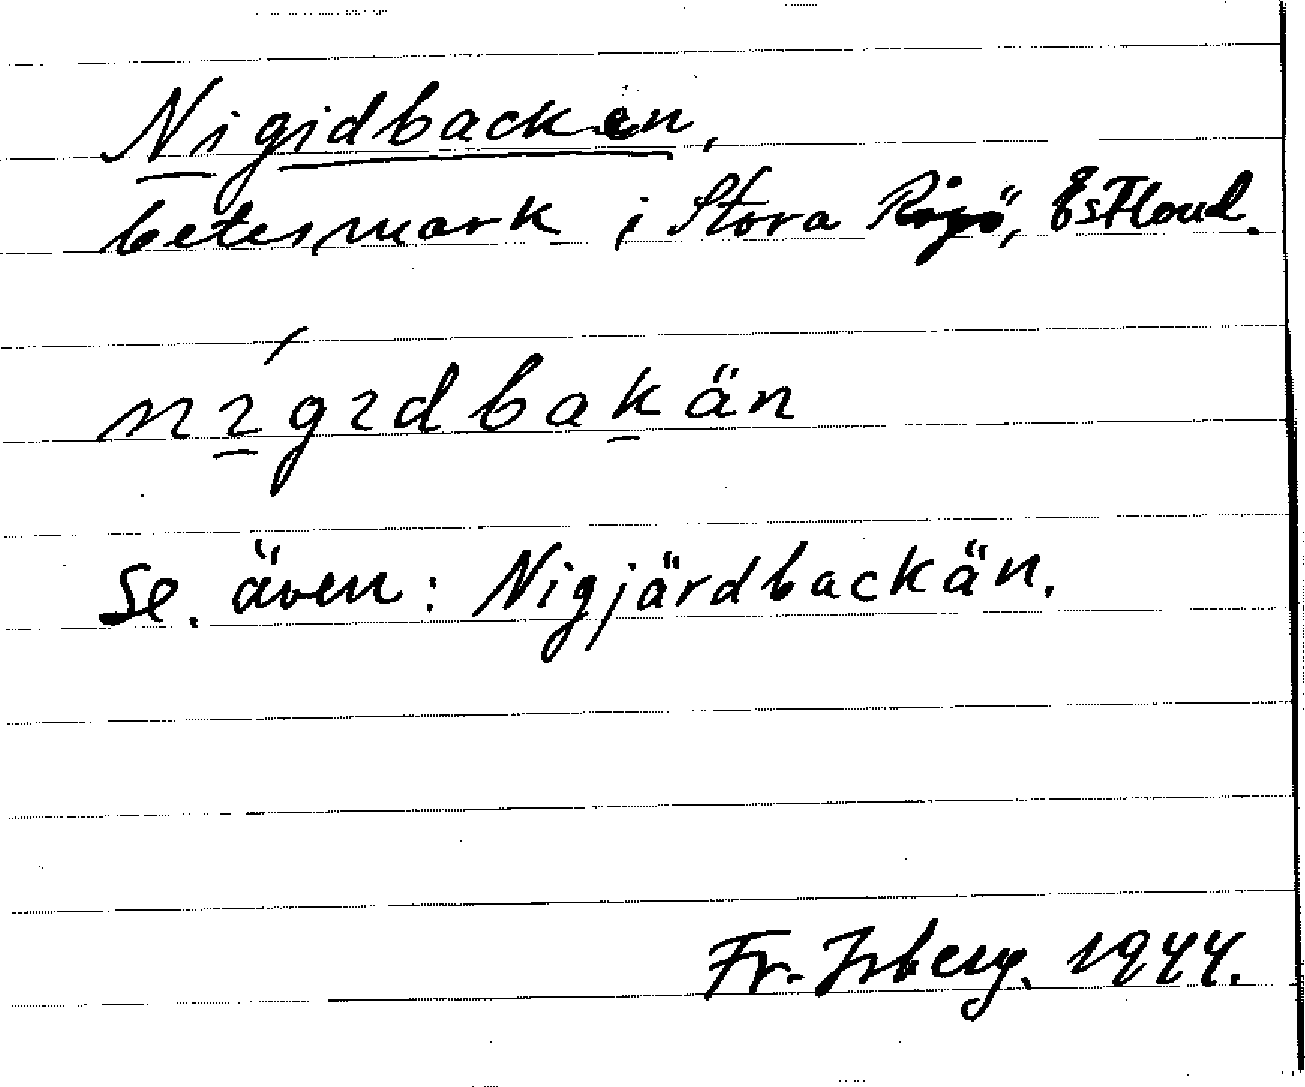 Nigidbacken,
betesmark i Stora Rågö, Estland.
nígıdbakän
Se. även: Nigjärdbackän.
Fr. Isberg. 1944.